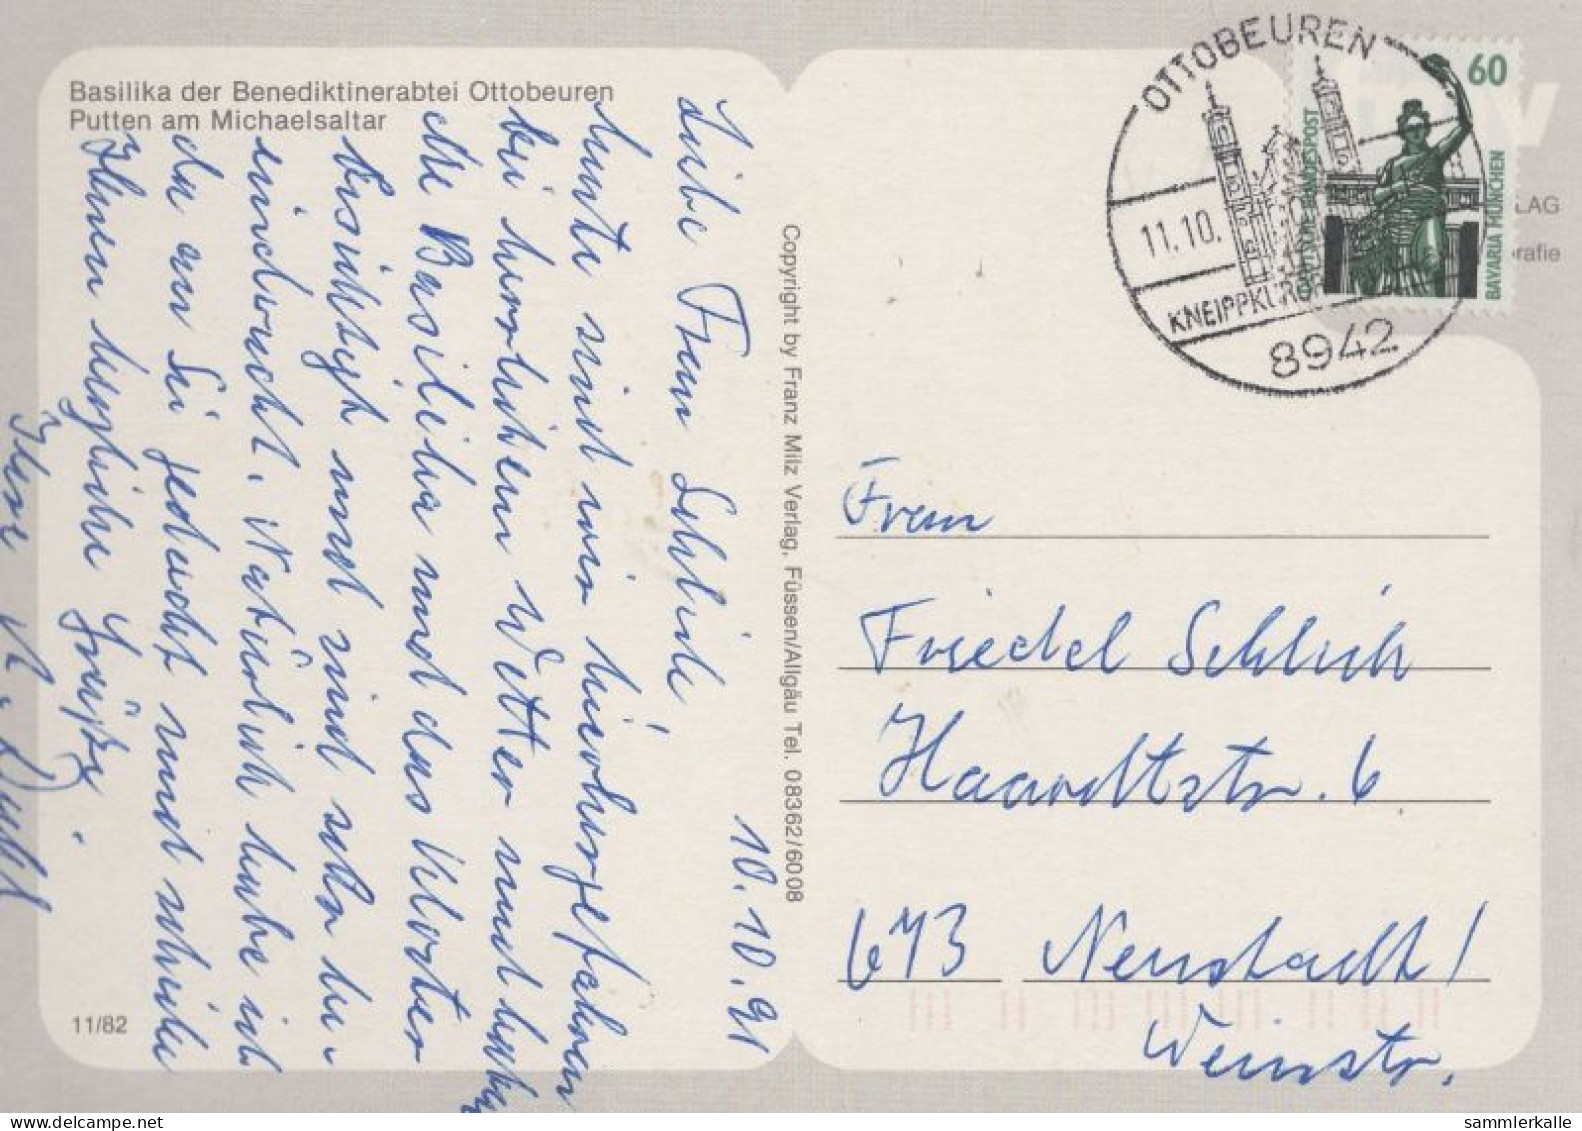 Basilika der Benediktinerabtei Ottobeuren
Putten am Michaelsaltar
10.10.91
Liebe Frau Schlich!
heute sind wir hierhergefahren
bei herrlichem Wetter und haben
die Basilika und das Kloster
besichtigt und sind sehr be-
eindruckt. Natürlich habe ich
da an Sie gedacht und schicke
Ihnen herzliche Grüße.
Ihre
11/82
Copyright by Franz Milz Verlag, Füssen/Allgäu Tel. 08362/6008
OTTOBEUREN
11.10.
KNEIPPKUR
8942
60
DEUTSCHE BUNDESPOST
BAVARIA MÜNCHEN
LAG
rafie
Frau
Friedel Schlich
Haardtstr. 6
673 Neustadt/
Weinstr.
sammlerkalle